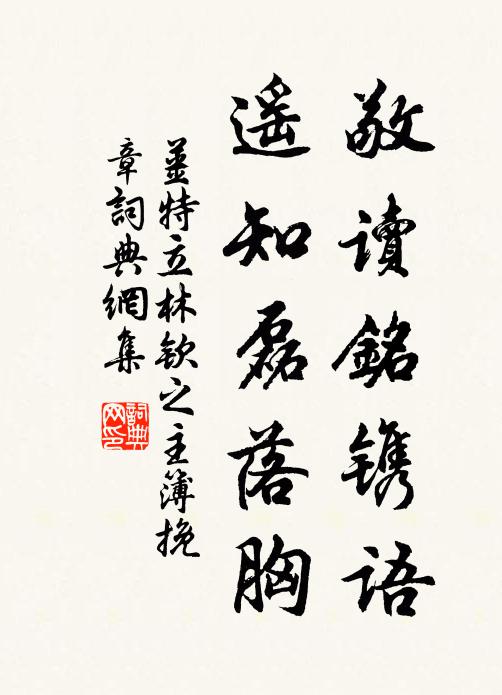 敬讀銘镌語
遥知磊落胸
薑特立林欽之主簿挽
章詞典網集
詞典
网印